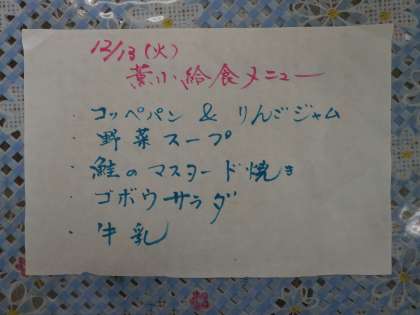 12/13(火)
葉小給食メニュー
・コッペパン & りんごジャム
・野菜スープ
・鮭のマスタード焼き
・ゴボウサラダ
・牛乳